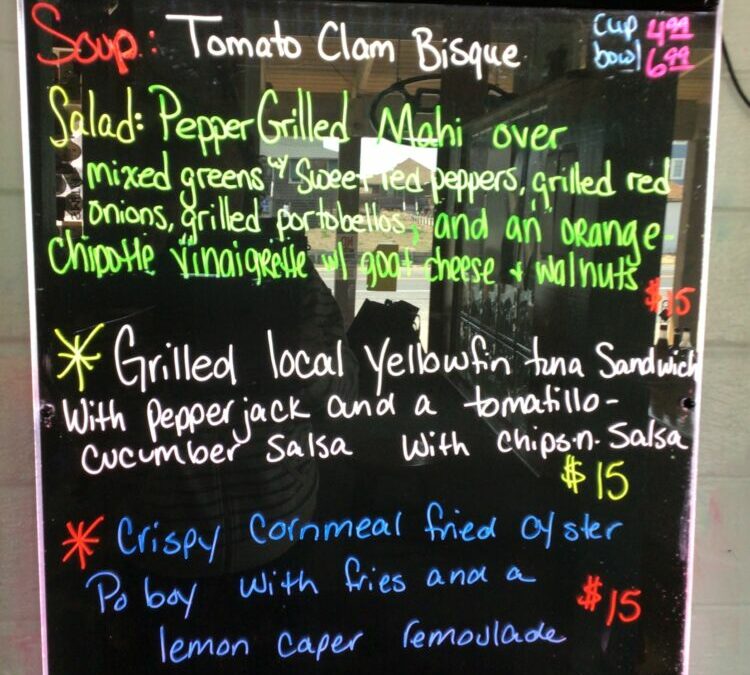 Soup: Tomato Clam Bisque
cup 4.99
bowl 6.99
Salad: Pepper Grilled Mahi over
mixed greens w/ sweet red peppers, grilled red
onions, grilled portobellos, and an orange-
chipotle vinaigrette w/ goat cheese + walnuts
$15
* Grilled local Yellowfin tuna Sandwich
With pepperjack and a tomatillo-
cucumber Salsa with chips.n.Salsa
$15
* Crispy Cornmeal fried oyster
Po boy with fries and a
$15
lemon caper remoulade